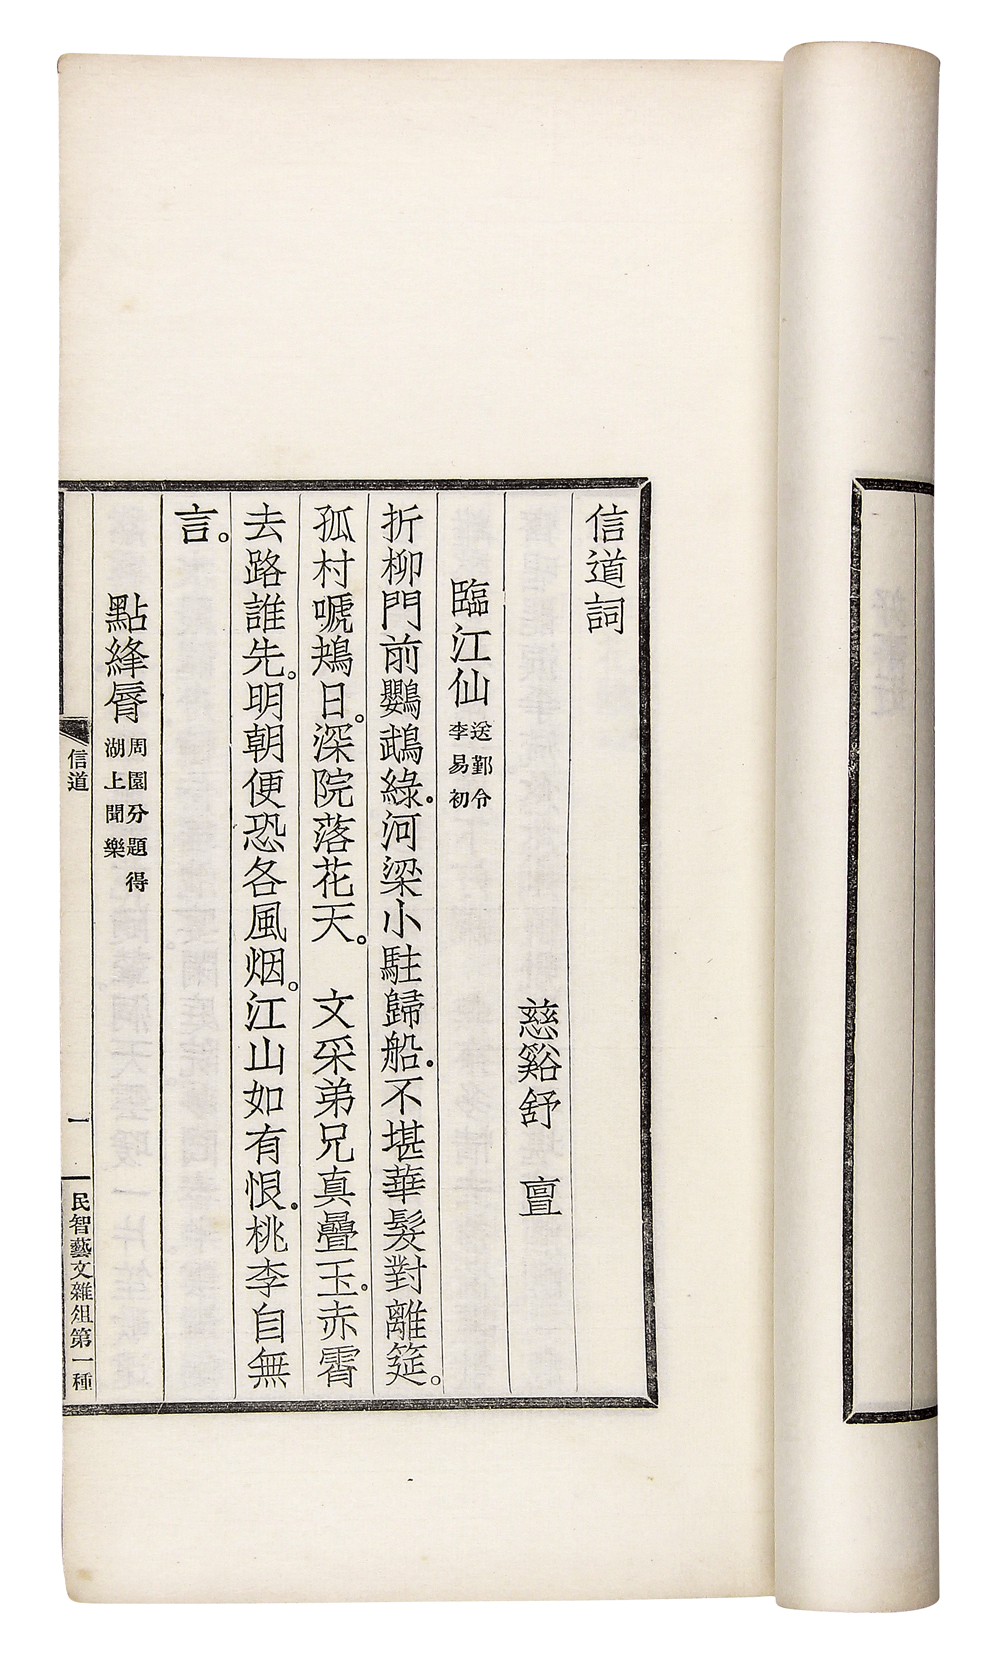 信道詞
慈谿舒 亶
臨江仙 送鄞令李易初
折柳門前鸚鵡綠.河梁小駐歸船.不堪華髮對離筵。
孤村啼鴂日。深院落花天。 文采弟兄真疊玉。赤霄
去路誰先。明朝便恐各風烟。江山如有恨.桃李自無
言。
點絳脣 周園分題得湖上聞樂
信道
一
民智藝文雜俎第一種